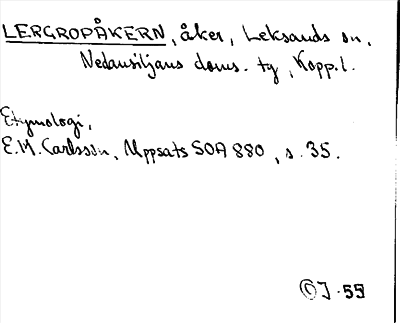 LERGROPÅKERN, åker, Leksands sn,
Nedansiljans doms. tg, Kopp. l.
Etymologi,
E.M. Carlsson, Uppsats SOA 880, s. 35.
ÖJ-55